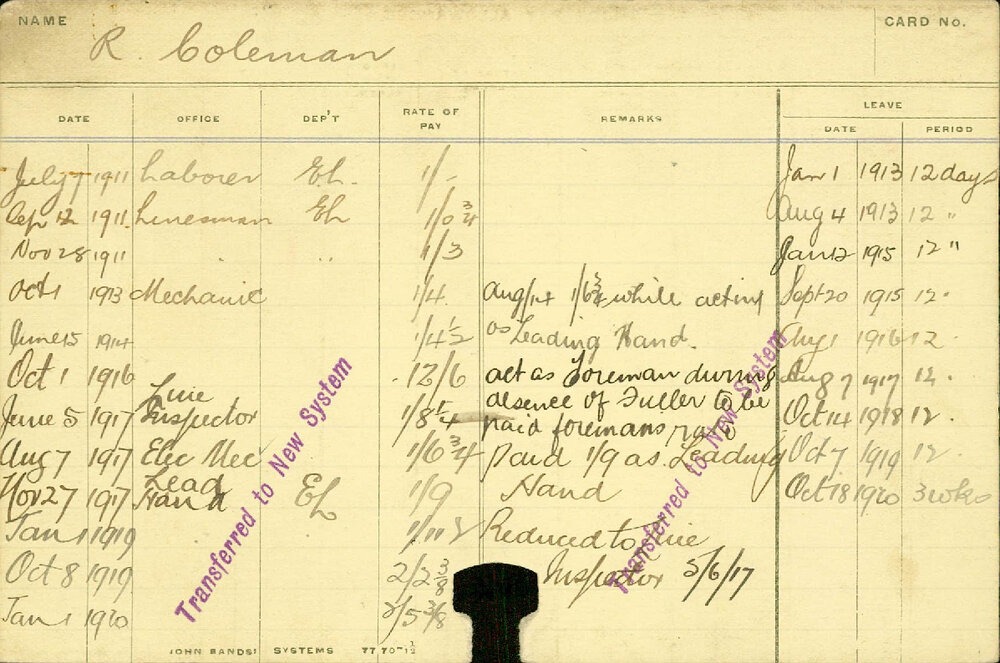 NAME R. Coleman CARD No.
DATE OFFICE DEP'T RATE OF PAY REMARKS LEAVE
DATE PERIOD
July 7 1911 Laborer El. 1/- Jan 1 1913 12 days
Sep 12 1911. Linesman El 1/0 3/4 Aug 4 1913 12 "
Nov 28 1911 " 1/3 Jan 12 1915 12 "
Oct 1 1913 Mechanic 1/4. Aug/14 1/6 3/4 while acting Sept 20 1915 12 "
June 15 1914 1/4 1/2 as Leading Hand. Aug 1 1916 12 "
Oct 1 1916 12/6 act as Foreman during Aug 7 1917 12.
Line
June 5 1917 Inspector absence of Fuller to be Oct 14 1918 12.
paid foremans rate
Aug 7 1917 Elec Mec 1/6 3/4 Paid 1/9 as Leading Oct 7 1919 12.
Lead
Nov 27 1917 Hand El 1/9 Hand Oct 18 1920 3 wks
Jan 1 1919 Reduced to Line
Oct 8 1919 2/2 3/8 Inspector 5/6/17
Jan 1 1920 2/5 3/8
Transferred to New System
Transferred to New System
JOHN SANDS SYSTEMS